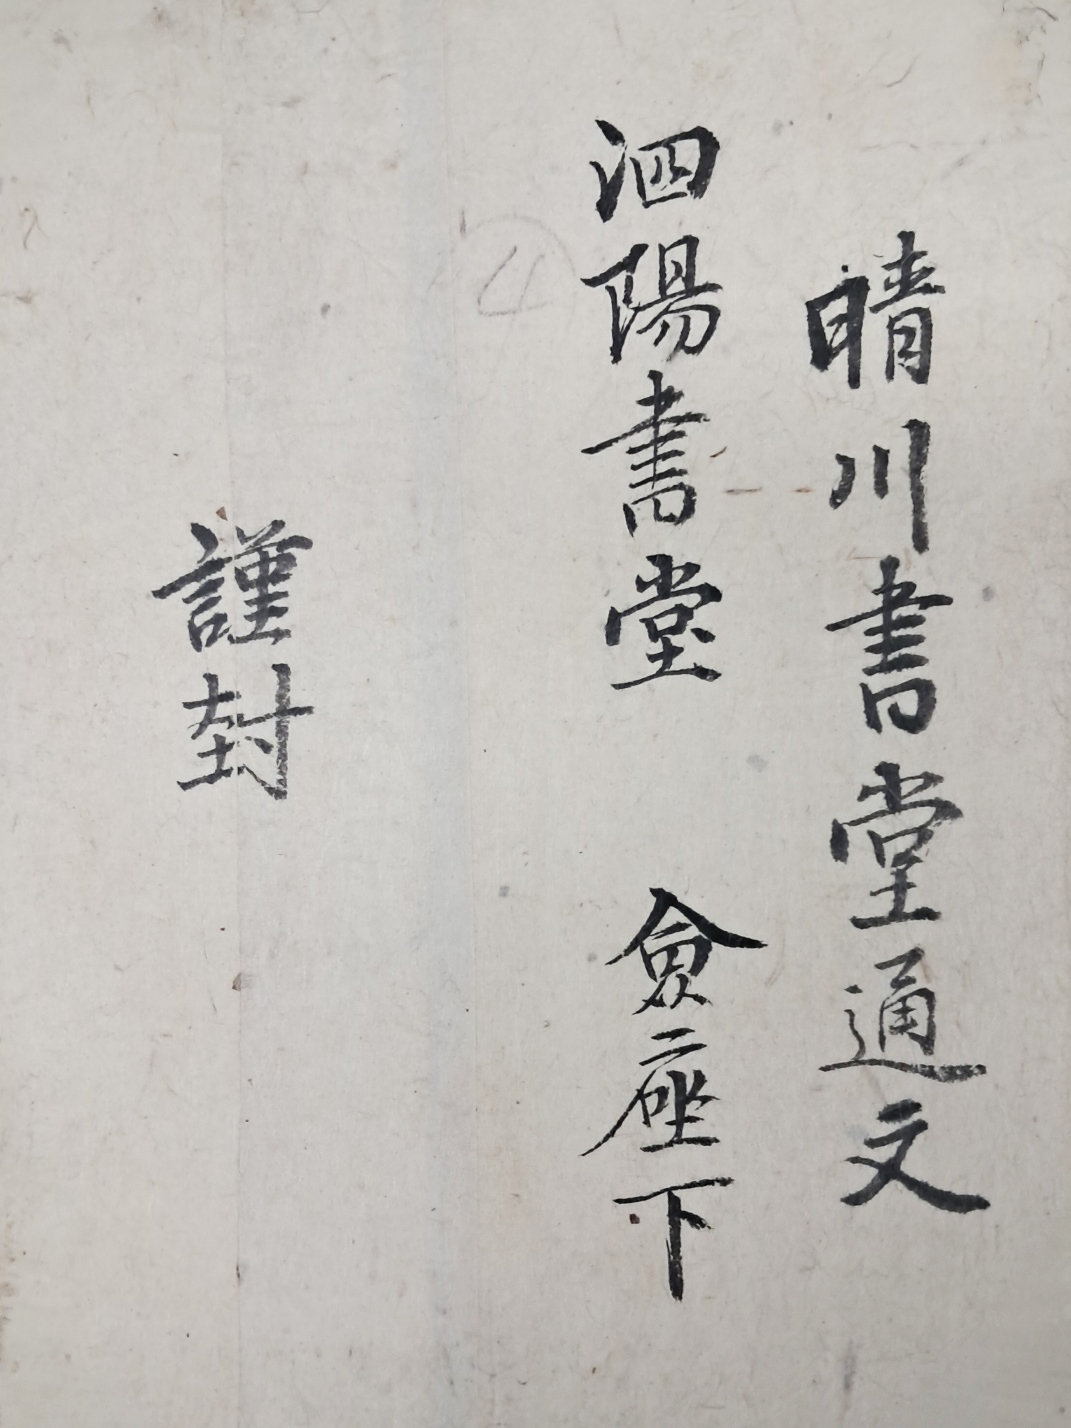 晴川書堂通文
泗陽書堂 僉座下
謹封